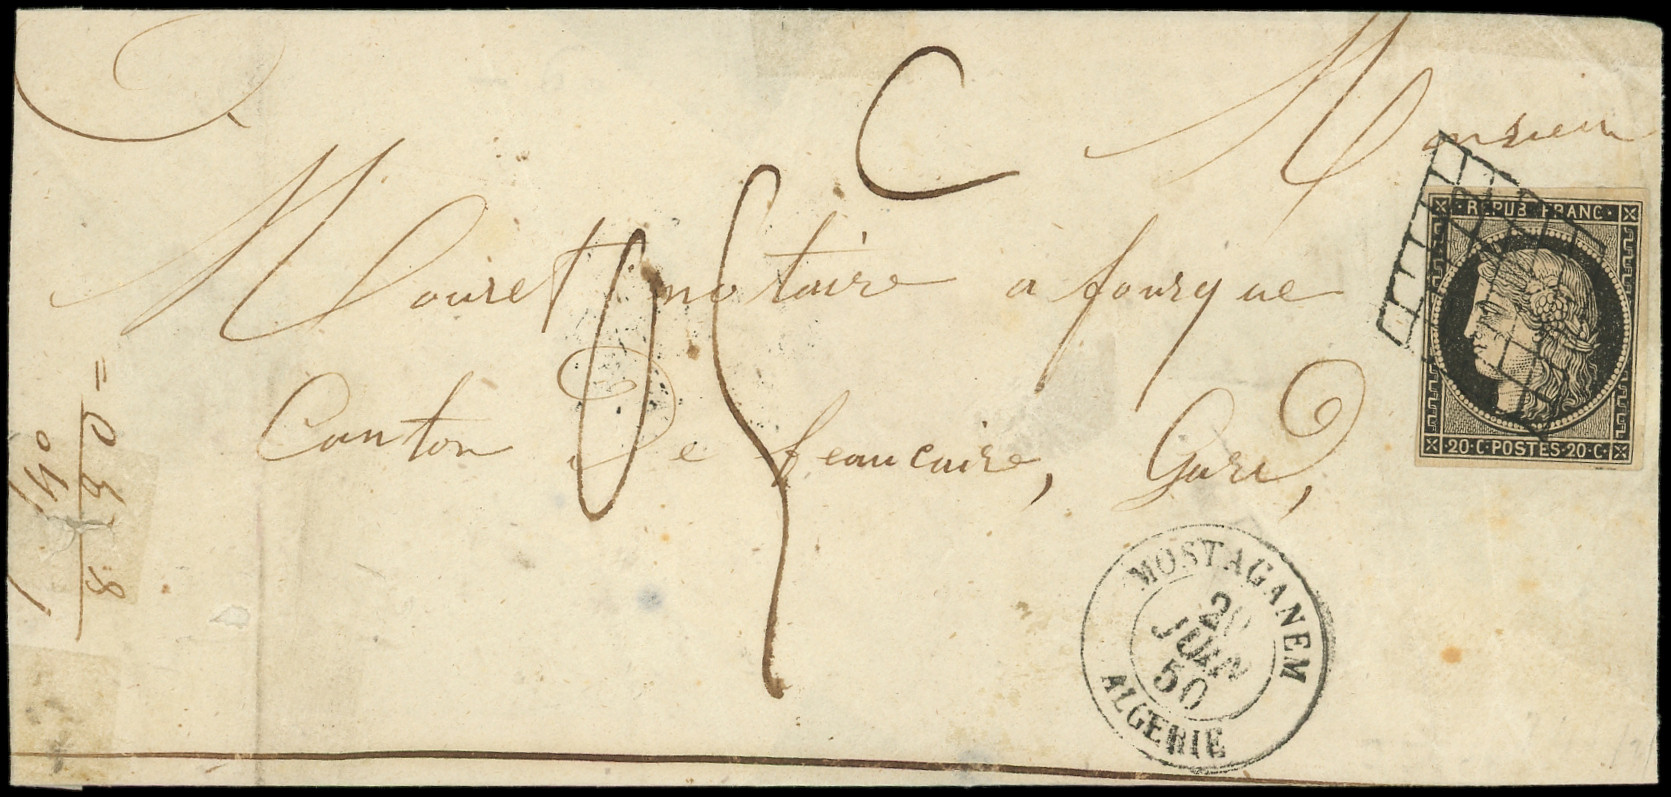 C
Monsieur
Mouret notaire a fourque
Canton De Beaucaire, Gard,
REPUB FRANC
20·C·POSTES·20·C·
MOSTAGANEM
JUIN
50
ALGERIE